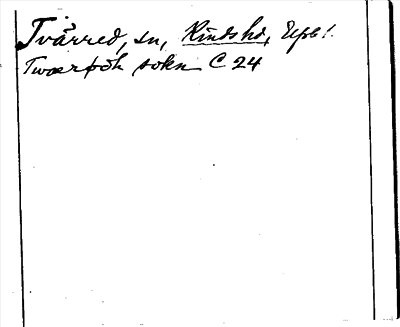 Tvärred, sn, Kinds hd, Älvsb!
Twærþöh sokn C 24